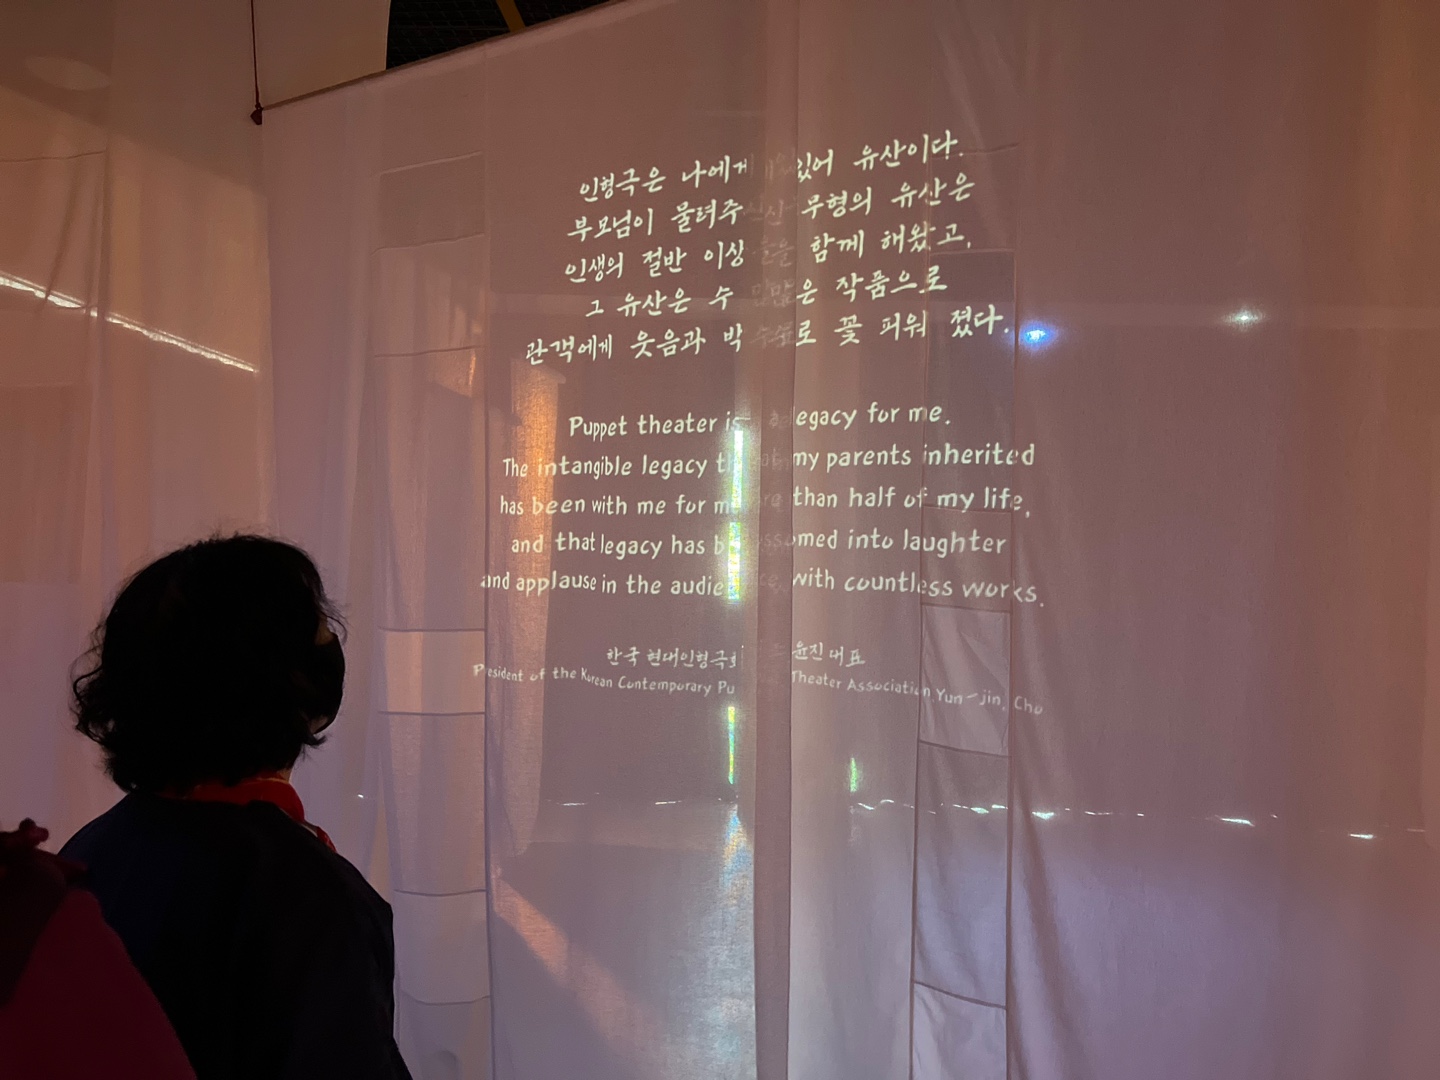 인형극은 나에게 있어 유산이다.
부모님이 물려주신 무형의 유산은
인생의 절반 이상을 함께 해왔고,
그 유산은 수 많은 작품으로
관객에게 웃음과 박수로 꽃 피워 졌다.
Puppet theater is a legacy for me.
The intangible legacy that my parents inherited
has been with me for more than half of my life,
and that legacy has blossomed into laughter
and applause in the audience with countless works.
한국 현대인형극회 조윤진 대표
President of the Korean Contemporary Theater Association Yun-jin, Cho